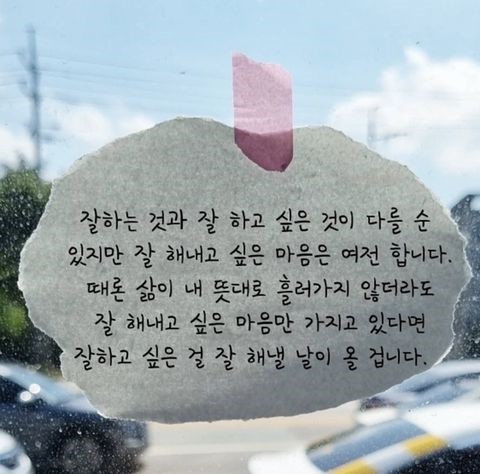 잘하는 것과 잘 하고 싶은 것이 다를 순
있지만 잘 해내고 싶은 마음은 여전 합니다.
때론 삶이 내 뜻대로 흘러가지 않더라도
잘 해내고 싶은 마음만 가지고 있다면
잘하고 싶은 걸 잘 해낼 날이 올 겁니다.